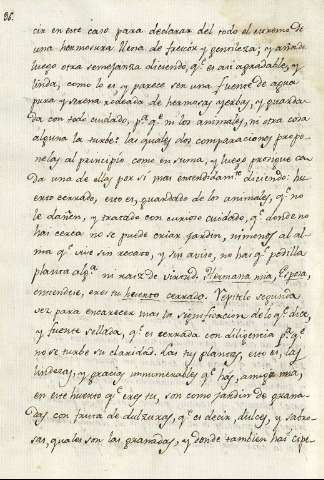 86.
cir en este caso para declarar del todo el extremo de
una hermosura llena de frescor, y gentileza; y añade
luego otra semejanza diciendo, q.e es assi agradable, y
linda, como lo es, y parece ser una fuente de agua
pura y serena rodeada de hermosas yerbas, y guarda-
da con todo cuidado, p.a q.e ni los animales, ni otra cosa
alguna la turbe: las quales dos comparaciones propo-
nelas al principio como en suma, y luego prosigue ca-
da una de ellas por sí mas entendidam.te diciendo: hu-
erto cerrado, esto es, guardado de los animales, q.e no
le dañen, y tratado con curioso cuidado, q.e donde no
hai cerca no se puede criar jardin, ni menos al al-
ma q.e vive sin recato, y sin aviso, no hai q.e pedilla
planta alg.a ni raiz de virtud. Hermana mia, Esposa,
entiendese, eres tu huerto cerrado. Repitelo segunda
vez para encarecer mas la significacion de lo q.e dice,
y fuente sellada, q.e es cerrada con diligencia p.a q.e
no se turbe su claridad. Las tus plantas, esto es, las
lindezas, y gracias innumerables q.e hai, amiga mia,
en este huerto q.e eres tu, son como jardin de grana-
das con fruta de dulzuras, q.e es decir, dulces, y sabro-
sas, quales son las granadas, y donde tambien hai cipe-